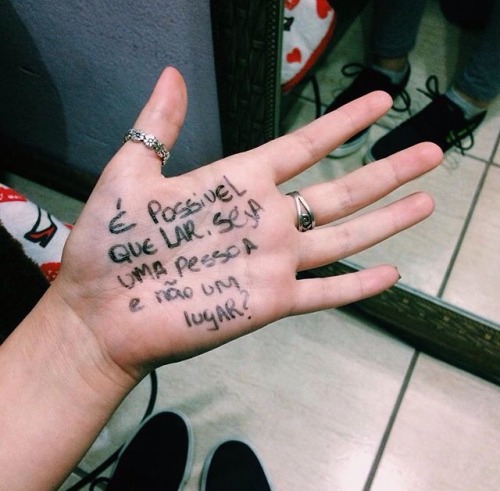 É POSSIVEL
QUE LAR, SEJA
UMA PESSOA
e NÃO UM
lUGAR?